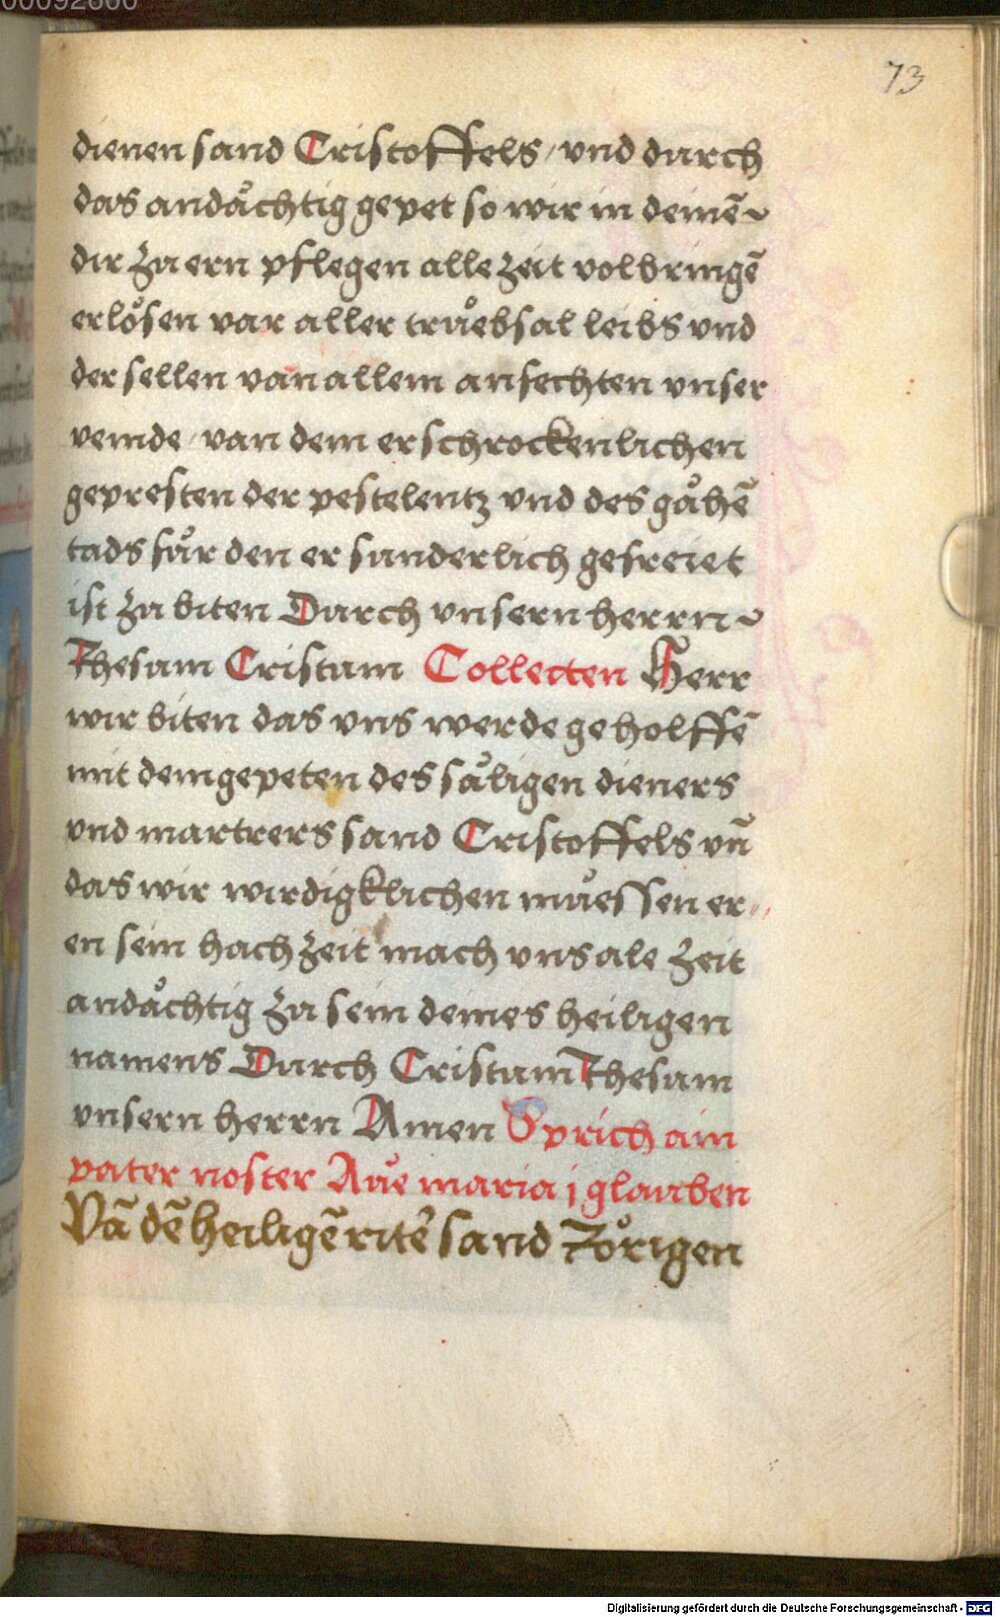 00092600
73
dienen sand Cristoffels / vnd durch
das andåchtig gepet so wir in deinē ~
dir zu ern pflegen alle zeit volbringē
erlo̊sen var aller trůebsal leibs vnd
der sellen van allem anfechten vnser
veinde / van dem erschrockenlichen
gepresten der pestelentz vnd des gåhē
tads får den er sunderlich gefreiet
ist zu biten Durch vnsern herrn ~
Jhesum Cristum Collecten Herr
wir biten das vns werde geholffē
mit dem gepeten des såligen dieners
vnd martrers sand Cristoffels vn̄
das wir wirdigklichen můessen er //
en sein hachzeit mach vns ale zeit
andåchtig zu sein deines heiligen
namens Durch Cristum Jhesum
vnsern herrn Amen Sprich ain
pater noster Aue maria j glauben
Vā dē heiligē rite᷑ sand Jo̊rigen
Digitalisierung gefördert durch die Deutsche Forschungsgemeinschaft - DFG